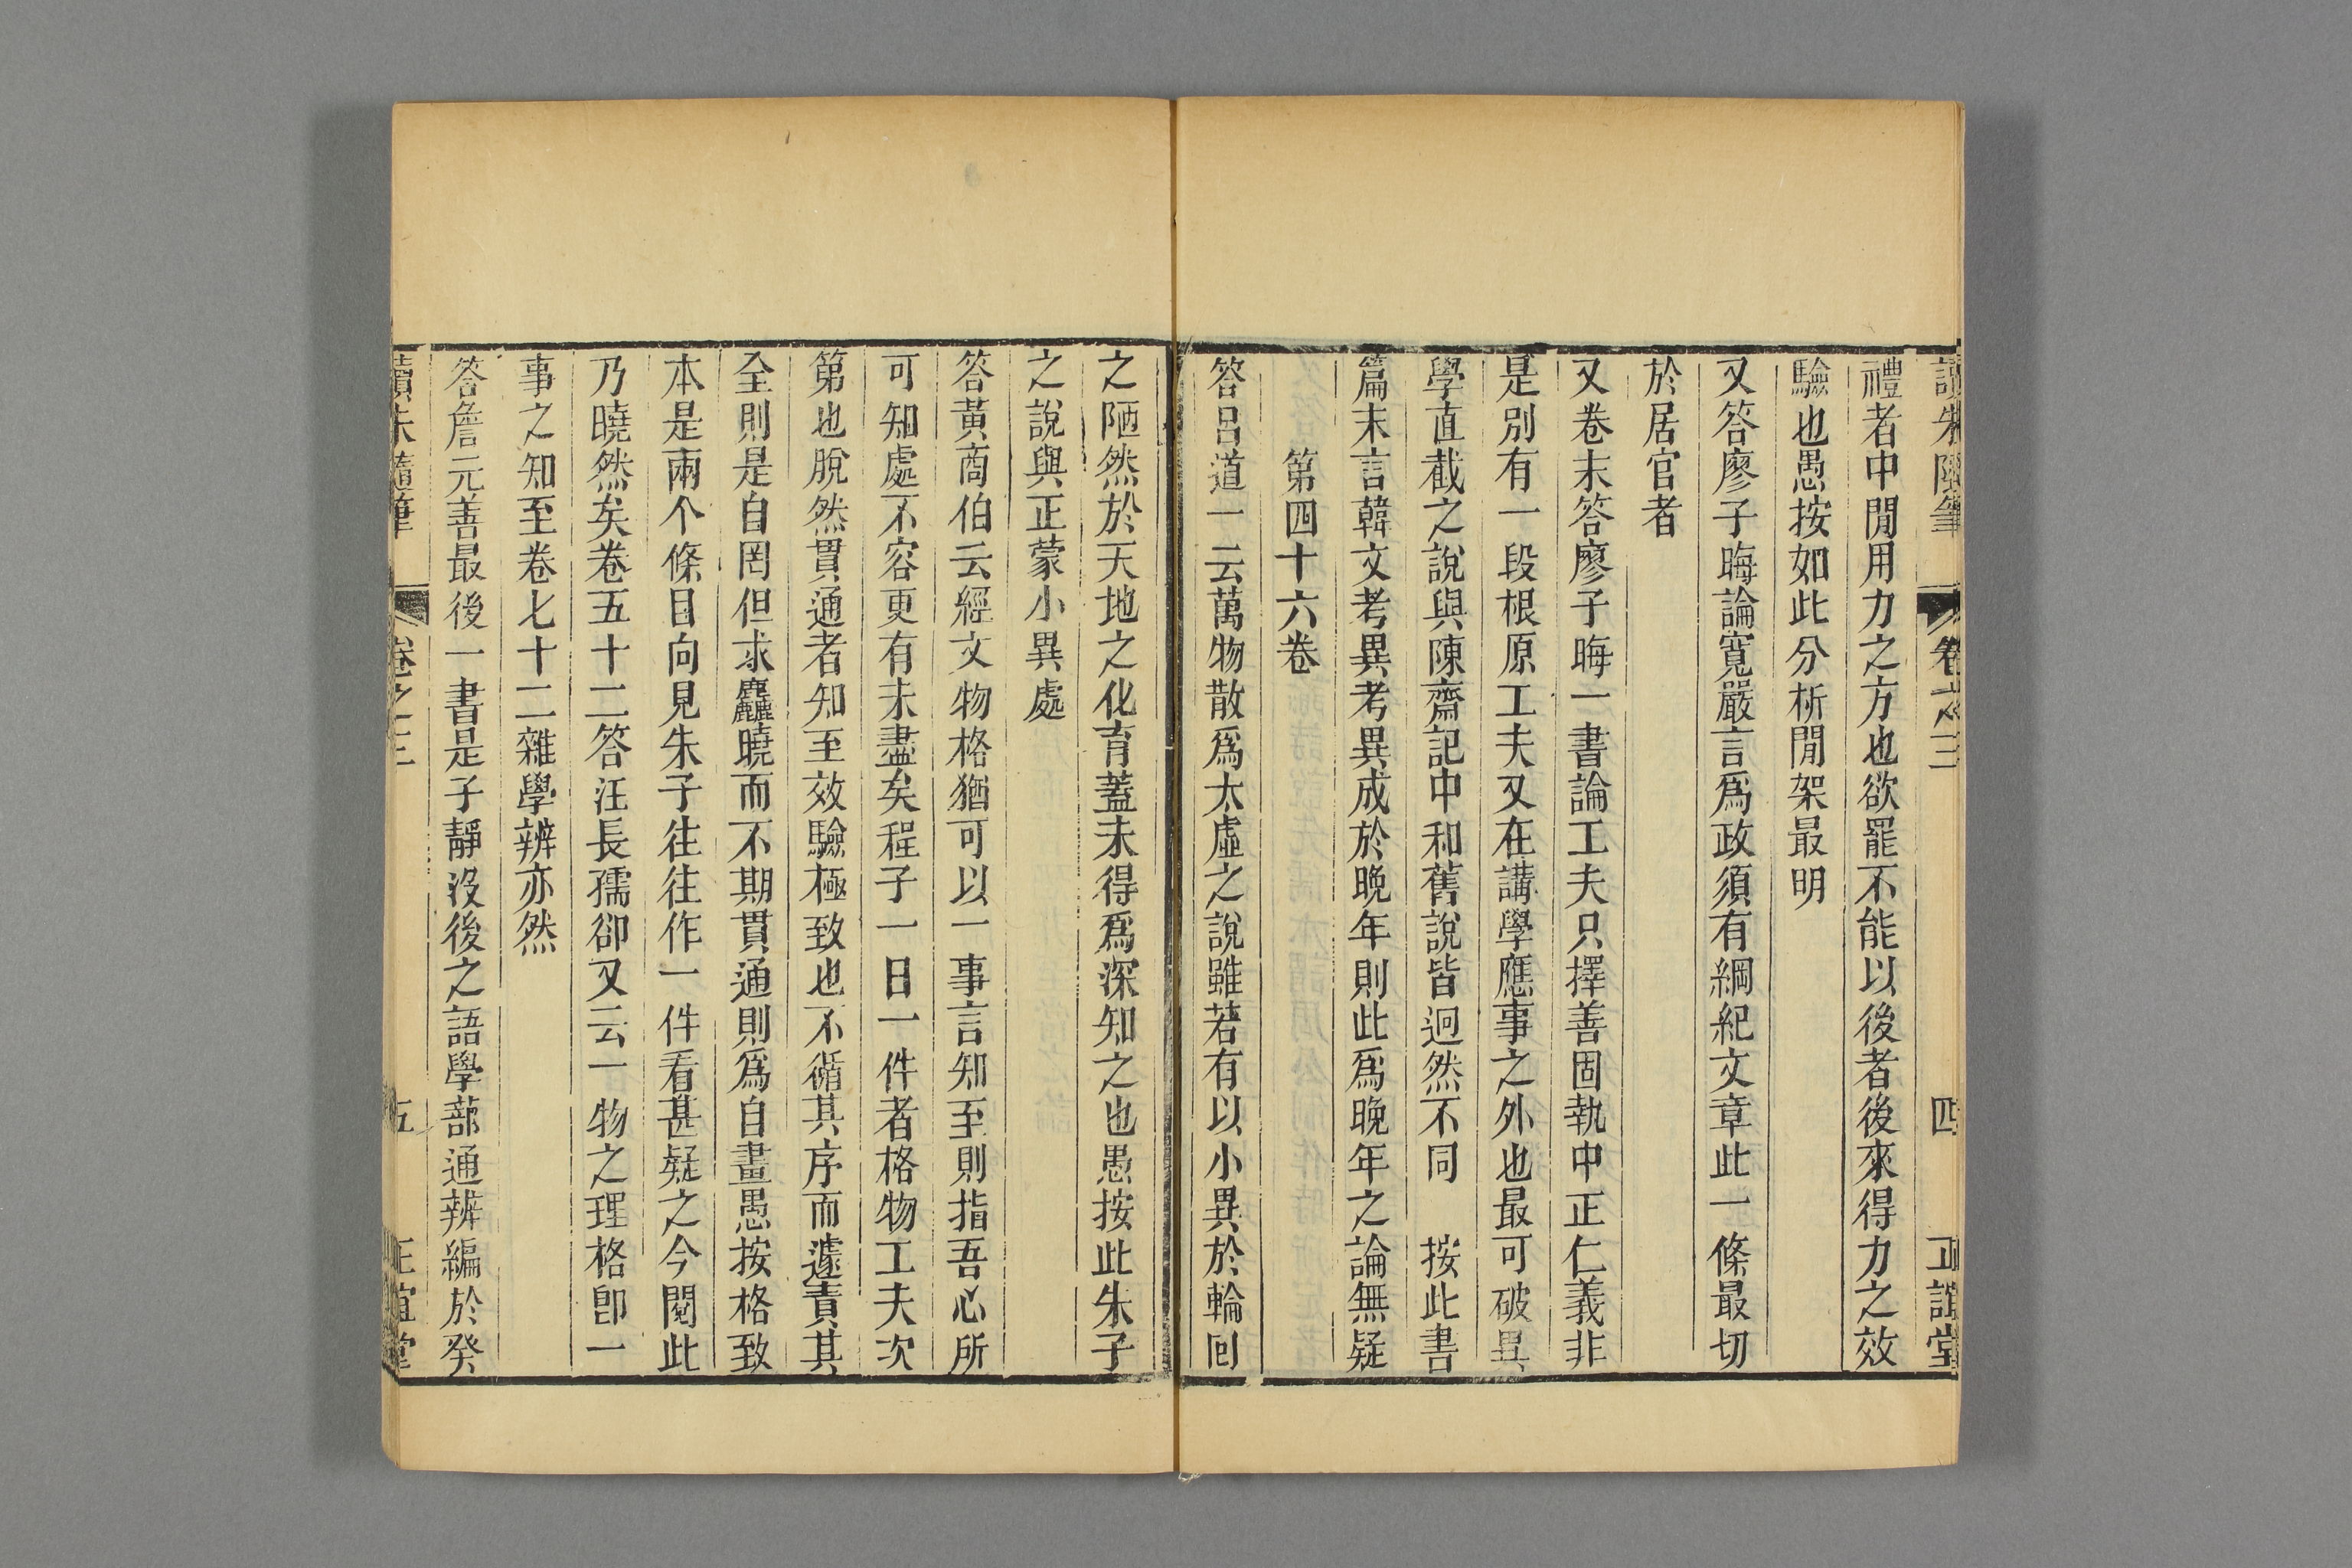 讀朱隨筆 卷之三 四 正誼堂
禮者中閒用力之方也欲罷不能以後者後來得力之效
驗也愚按如此分析閒架最明
又答廖子晦論寬嚴言爲政須有綱紀文章此一條最切
於居官者
又卷末答廖子晦一書論工夫只擇善固執中正仁義非
是別有一段根原工夫又在講學應事之外也最可破異
學直截之說與陳齋記中和舊說皆迥然不同 按此書
篇末言韓文考異考異成於晚年則此爲晚年之論無疑
第四十六卷
答呂道一云萬物散爲太虛之說雖若有以小異於輪回
之陋然於天地之化育蓋未得爲深知之也愚按此朱子
之說與正蒙小異處
答黃商伯云經文物格猶可以一事言知至則指吾心所
可知處不容更有未盡矣程子一日一件者格物工夫次
第也脫然貫通者知至效驗極致也不循其序而遽責其
全則是自罔但求麤曉而不期貫通則爲自畫愚按格致
本是兩个條目向見朱子往往作一件看甚疑之今閱此
乃曉然矣卷五十二答汪長孺卻又云一物之理格卽一
事之知至卷七十二雜學辨亦然
答詹元善最後一書是子靜沒後之語學蔀通辨編於癸
讀朱隨筆 卷之三 五 正誼堂